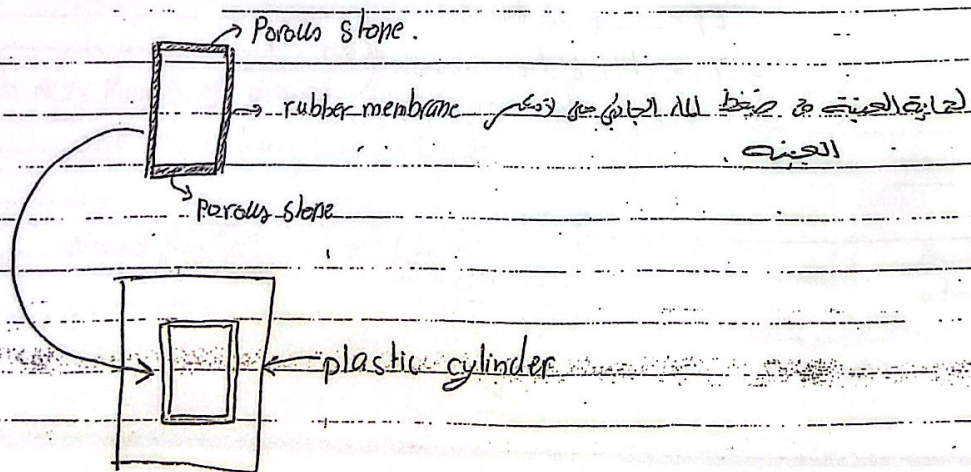 Porous stone.
rubber membrane لحماية العينة من ضغط الماء الجانبي حتى لا تنكسر
العينة.
Porous stone
plastic cylinder